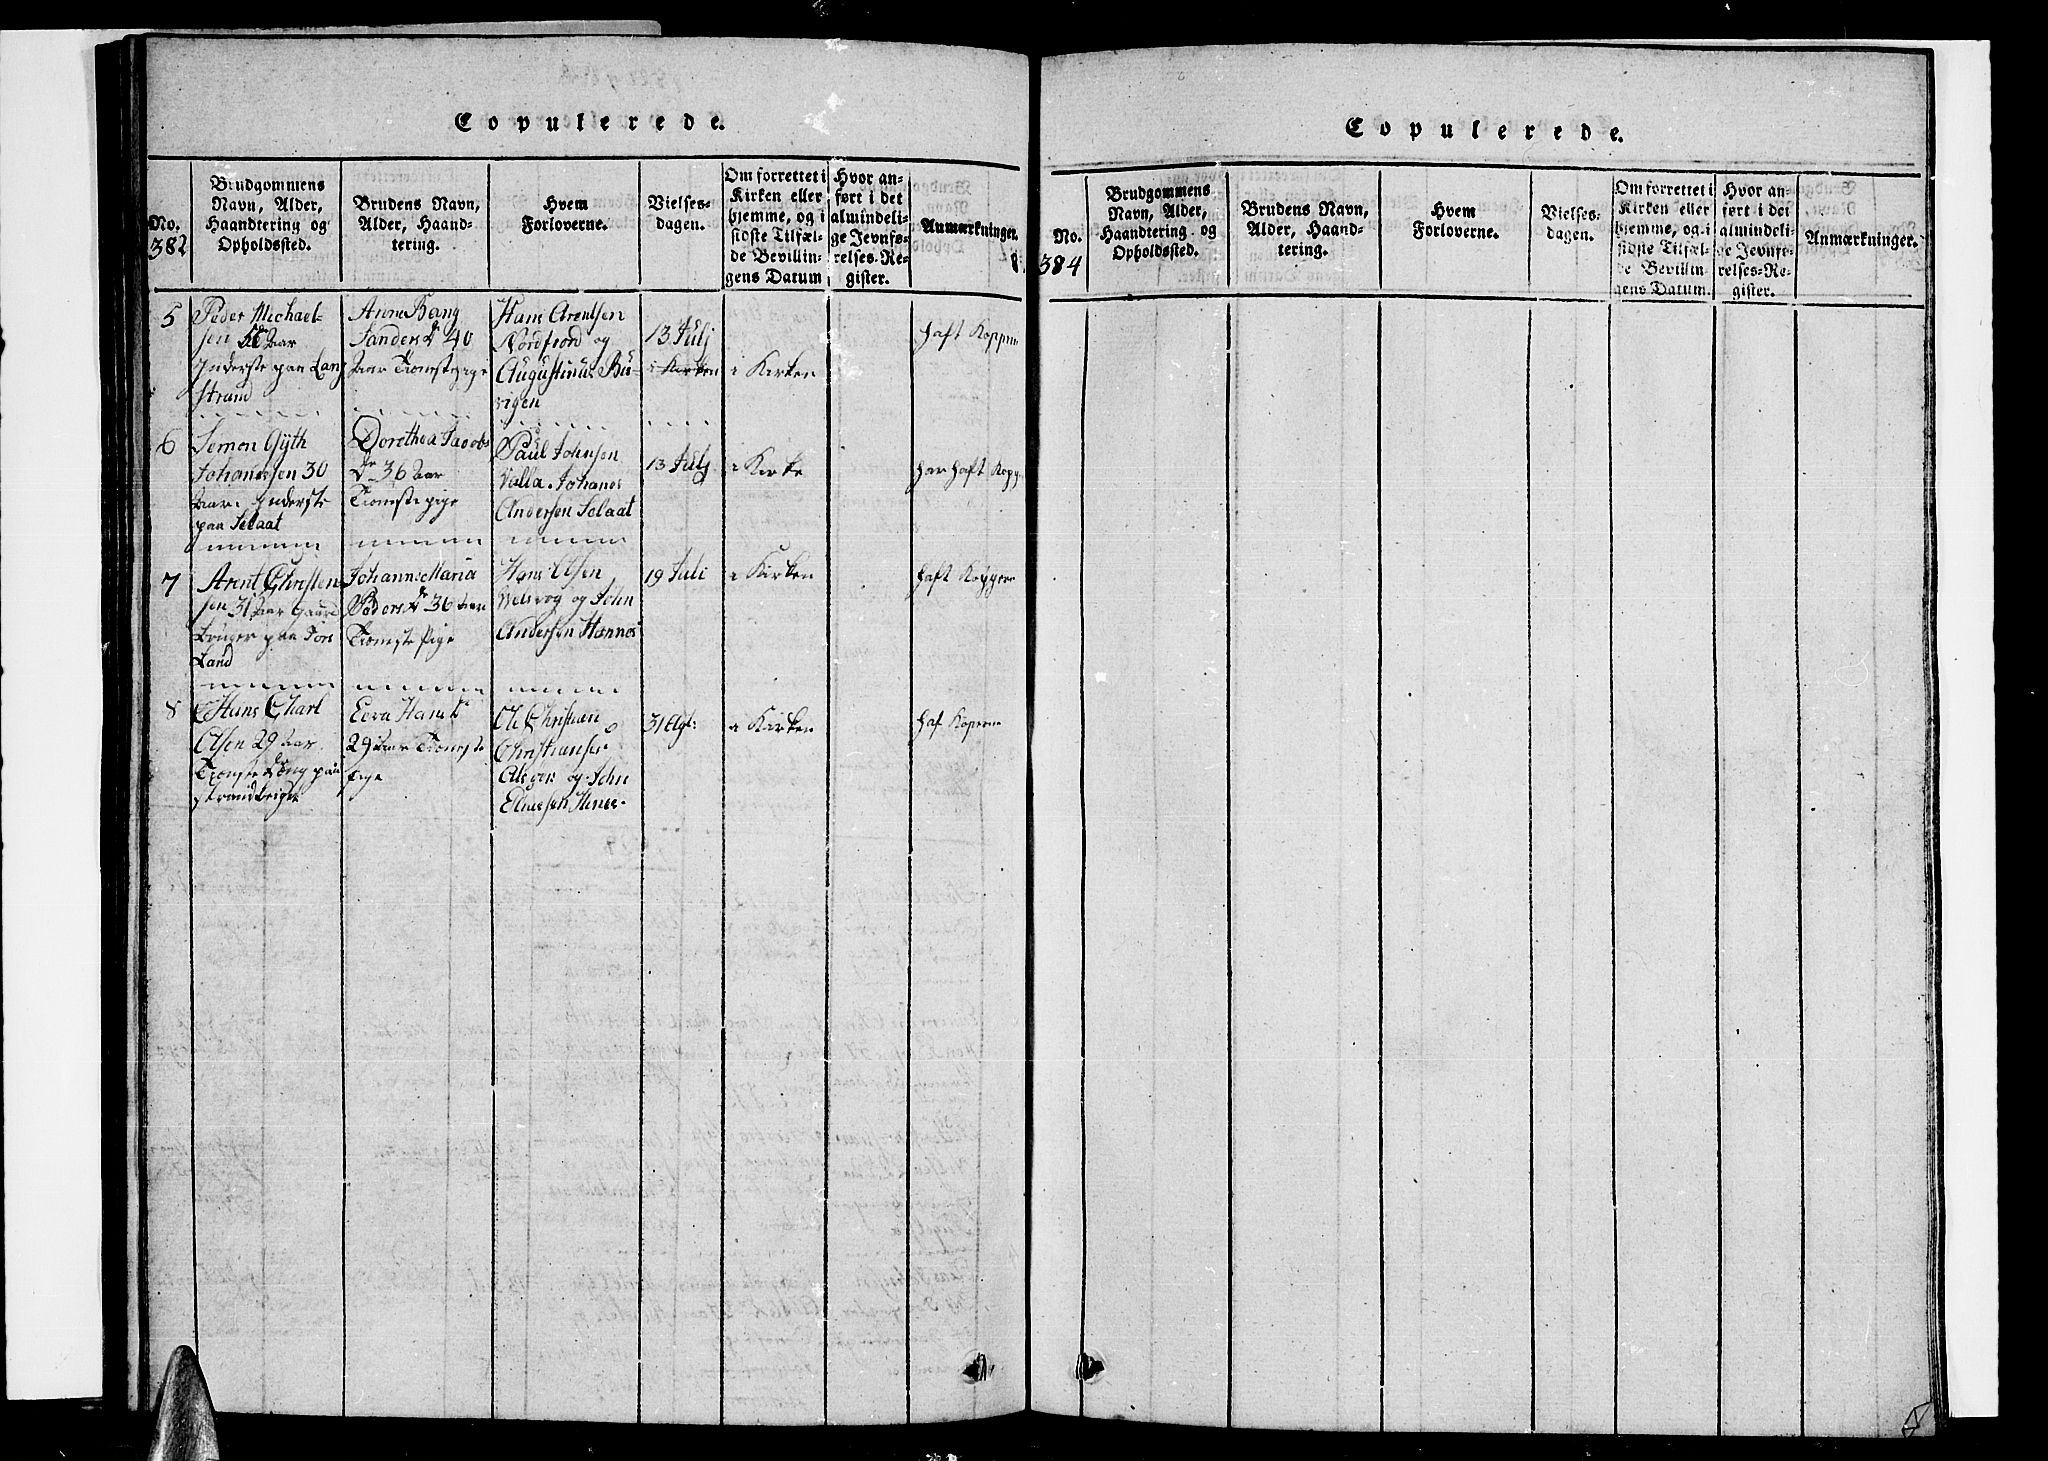 Copulerede.
No.
382
Brudgommens
Navn, Alder,
Haandtering og
Opholdssted.
Brudens Navn,
Alder, Haand-
tering.
Hvem
Forloverne.
Vielses-
dagen.
Om forrettet i
Kirken eller
hjemme, og i
sidste Tilfæl-
de Bevillin-
gens Datum
Hvor an-
ført i det
almindeli-
ge Jevnfø-
relses-Re-
gister.
Anmærkninger.
5
Peder Michael-
sen Aar
Inderste paa Lang
strand
Anna Bang
Sanders Dr 40
Aar Tieneste pige
Hans Arentsen
Nordfiord og
Augustinus
13 Julj
i Kirken
i Kirken
haft Koppene
6
Semon Gÿth
Johannesen 30
Aar. Inderste
paa Selaat
Dorothea Jacobs
Dr 36 Aar
Tieneste pige
Paul Johnsen
Valla. Johanes
Andersen Selaat
13 Julj
i Kirke
har haft Kopp
7
Arent Christen
sen 31 Aar Gaard
bruger paa Fors
Land
Johanne Maria
Peders Dr 36 Aar
Tieneste Pige
Hans Olsen
Welsvog og John
Andersen Hannes
19 Juli
i Kirken
haft Koppene
8
Hans Charl
Olsen 29 Aar
Tieneste Dreng paa
strand
Eeva Hans Dr
29 Aar Tieneste
Pige
Ole Christian
Christianse
og John
Hannes
31 Agt:
i Kirken
haf Kopene
Copulerede.
No.
384
Brudgommens
Navn, Alder,
Haandtering og
Opholdssted.
Brudens Navn,
Alder, Haand-
tering.
Hvem
Forloverne.
Vielses-
dagen.
Om forrettet i
Kirken eller
hjemme, og i
sidste Tilfæl-
de Bevillin-
gens Datum.
Hvor an-
ført i det
almindeli-
ge Jevnfø-
relses-Re-
gister.
Anmærkninger.